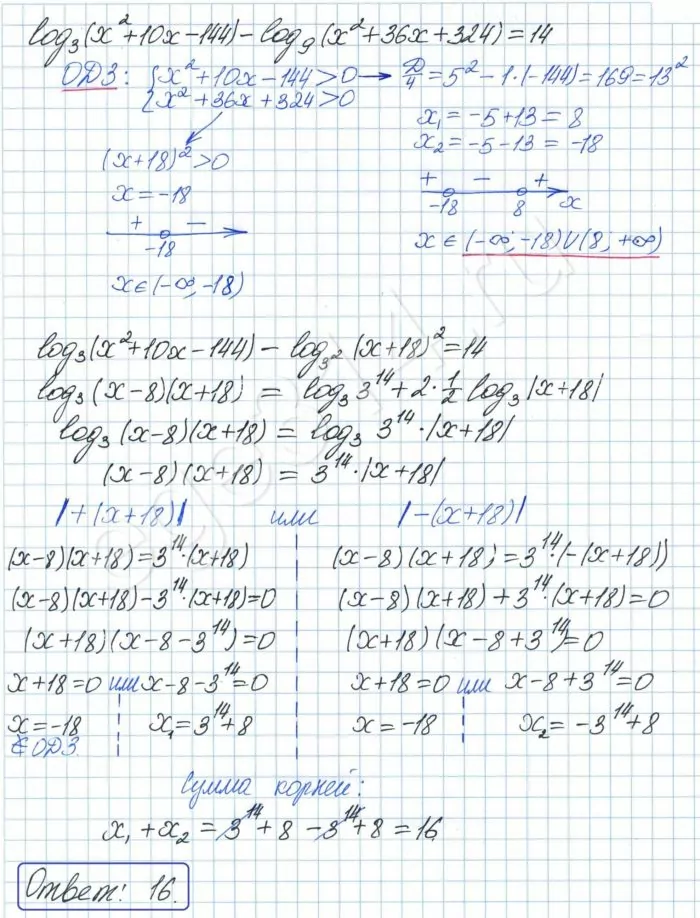 log₃(x²+10x-144)-log₉(x²+36x+324)=14
ОДЗ: {x²+10x-144>0 → D/4=5²-1·(-144)=169=13²
{x²+36x+324>0
x₁=-5+13=8
x₂=-5-13=-18
(x+18)²>0
x=-18
+ - +
-18 8 x
+ -
-18
x∈(-∞;-18)∪(8;+∞)
x∈(-∞;-18)
log₃(x²+10x-144)-log₃²(x+18)²=14
log₃(x-8)(x+18)=log₃3¹⁴+2·1/2 log₃|x+18|
log₃(x-8)(x+18)=log₃ 3¹⁴·|x+18|
(x-8)(x+18)=3¹⁴·|x+18|
|+(x+18)| или |-(x+18)|
(x-8)(x+18)=3¹⁴·(x+18)
(x-8)(x+18)-3¹⁴·(x+18)=0
(x+18)(x-8-3¹⁴)=0
x+18=0 или x-8-3¹⁴=0
x=-18 x₁=3¹⁴+8
∉ОДЗ
(x-8)(x+18)=3¹⁴·(-(x+18))
(x-8)(x+18)+3¹⁴·(x+18)=0
(x+18)(x-8+3¹⁴)=0
x+18=0 или x-8+3¹⁴=0
x=-18 x₂=-3¹⁴+8
Сумма корней:
x₁+x₂=3¹⁴+8-3¹⁴+8=16
Ответ: 16.